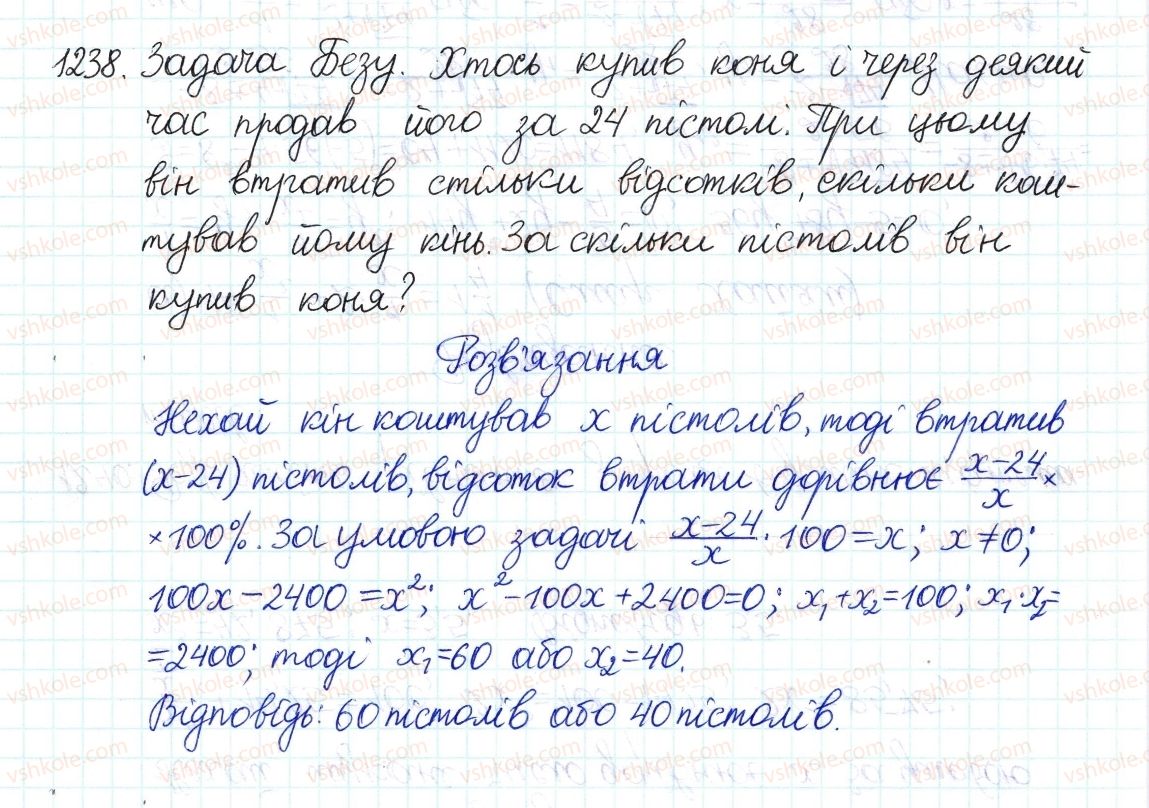 1238. Задача Безу. Хтось купив коня і через деякий
час продав його за 24 пістолі. При цьому
він втратив стільки відсотків, скільки кош-
тував йому кінь. За скільки пістолів він
купив коня?
Розв'язання
Нехай кін коштував x пістолів, тоді втратив
(x-24) пістолів, відсоток втрати дорівнює (x-24)/x ×
×100%. За умовою задачі (x-24)/x · 100 = x; x≠0;
100x - 2400 = x²; x² - 100x + 2400 = 0; x₁ + x₂ = 100; x₁ · x₂ =
= 2400; тоді x₁ = 60 або x₂ = 40.
Відповідь: 60 пістолів або 40 пістолів.